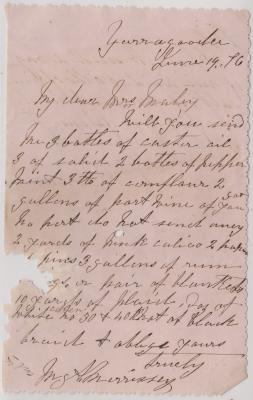 Yarragoorler
June 19. 76
My dear Mrs Maley
Will you send
me 3 bottles of caster oil
3 of salid 2 bottles of pepper
mint 3 lb of cornflour 2
gallons of port wine if you got
no port do not send any
2 yards of pink calico 2 papers
pins 3 gallons of rum
or pair of blankets
10 yards of plaid, Doz of
white no 30 & 40 Boat of black
braid & oblige yours
truely
Morrissey